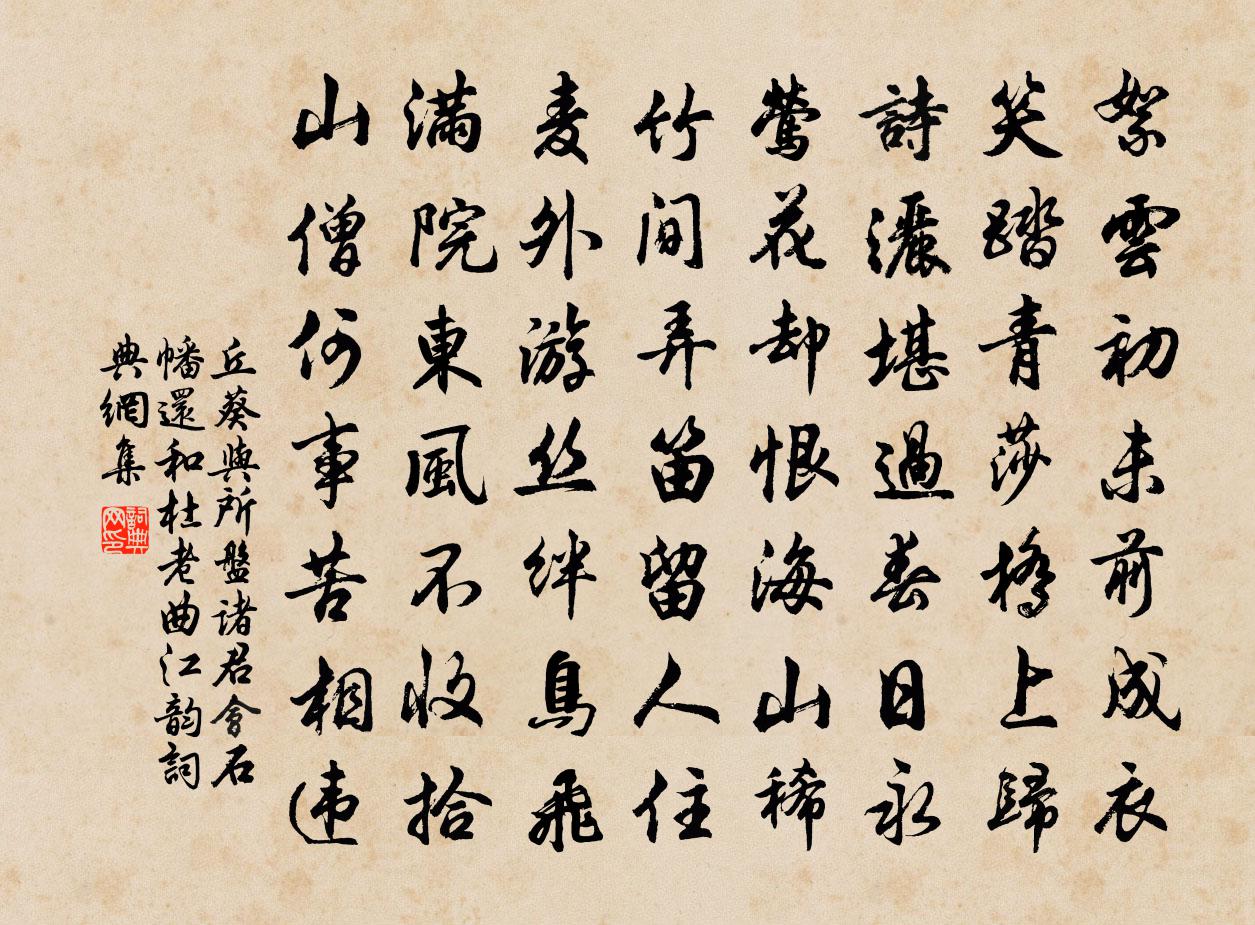 絮雲初未前成衣
笑踏青莎橋上歸
詩灑堪過春日永
鶯花却恨海山稀
竹間弄笛留人住
麦外游丝絆鳥飛
滿院東風不收拾
山僧何事苦相违
丘葵與所盤諸君會石
幡還和杜老曲江韵詞
典網集
詞典网印